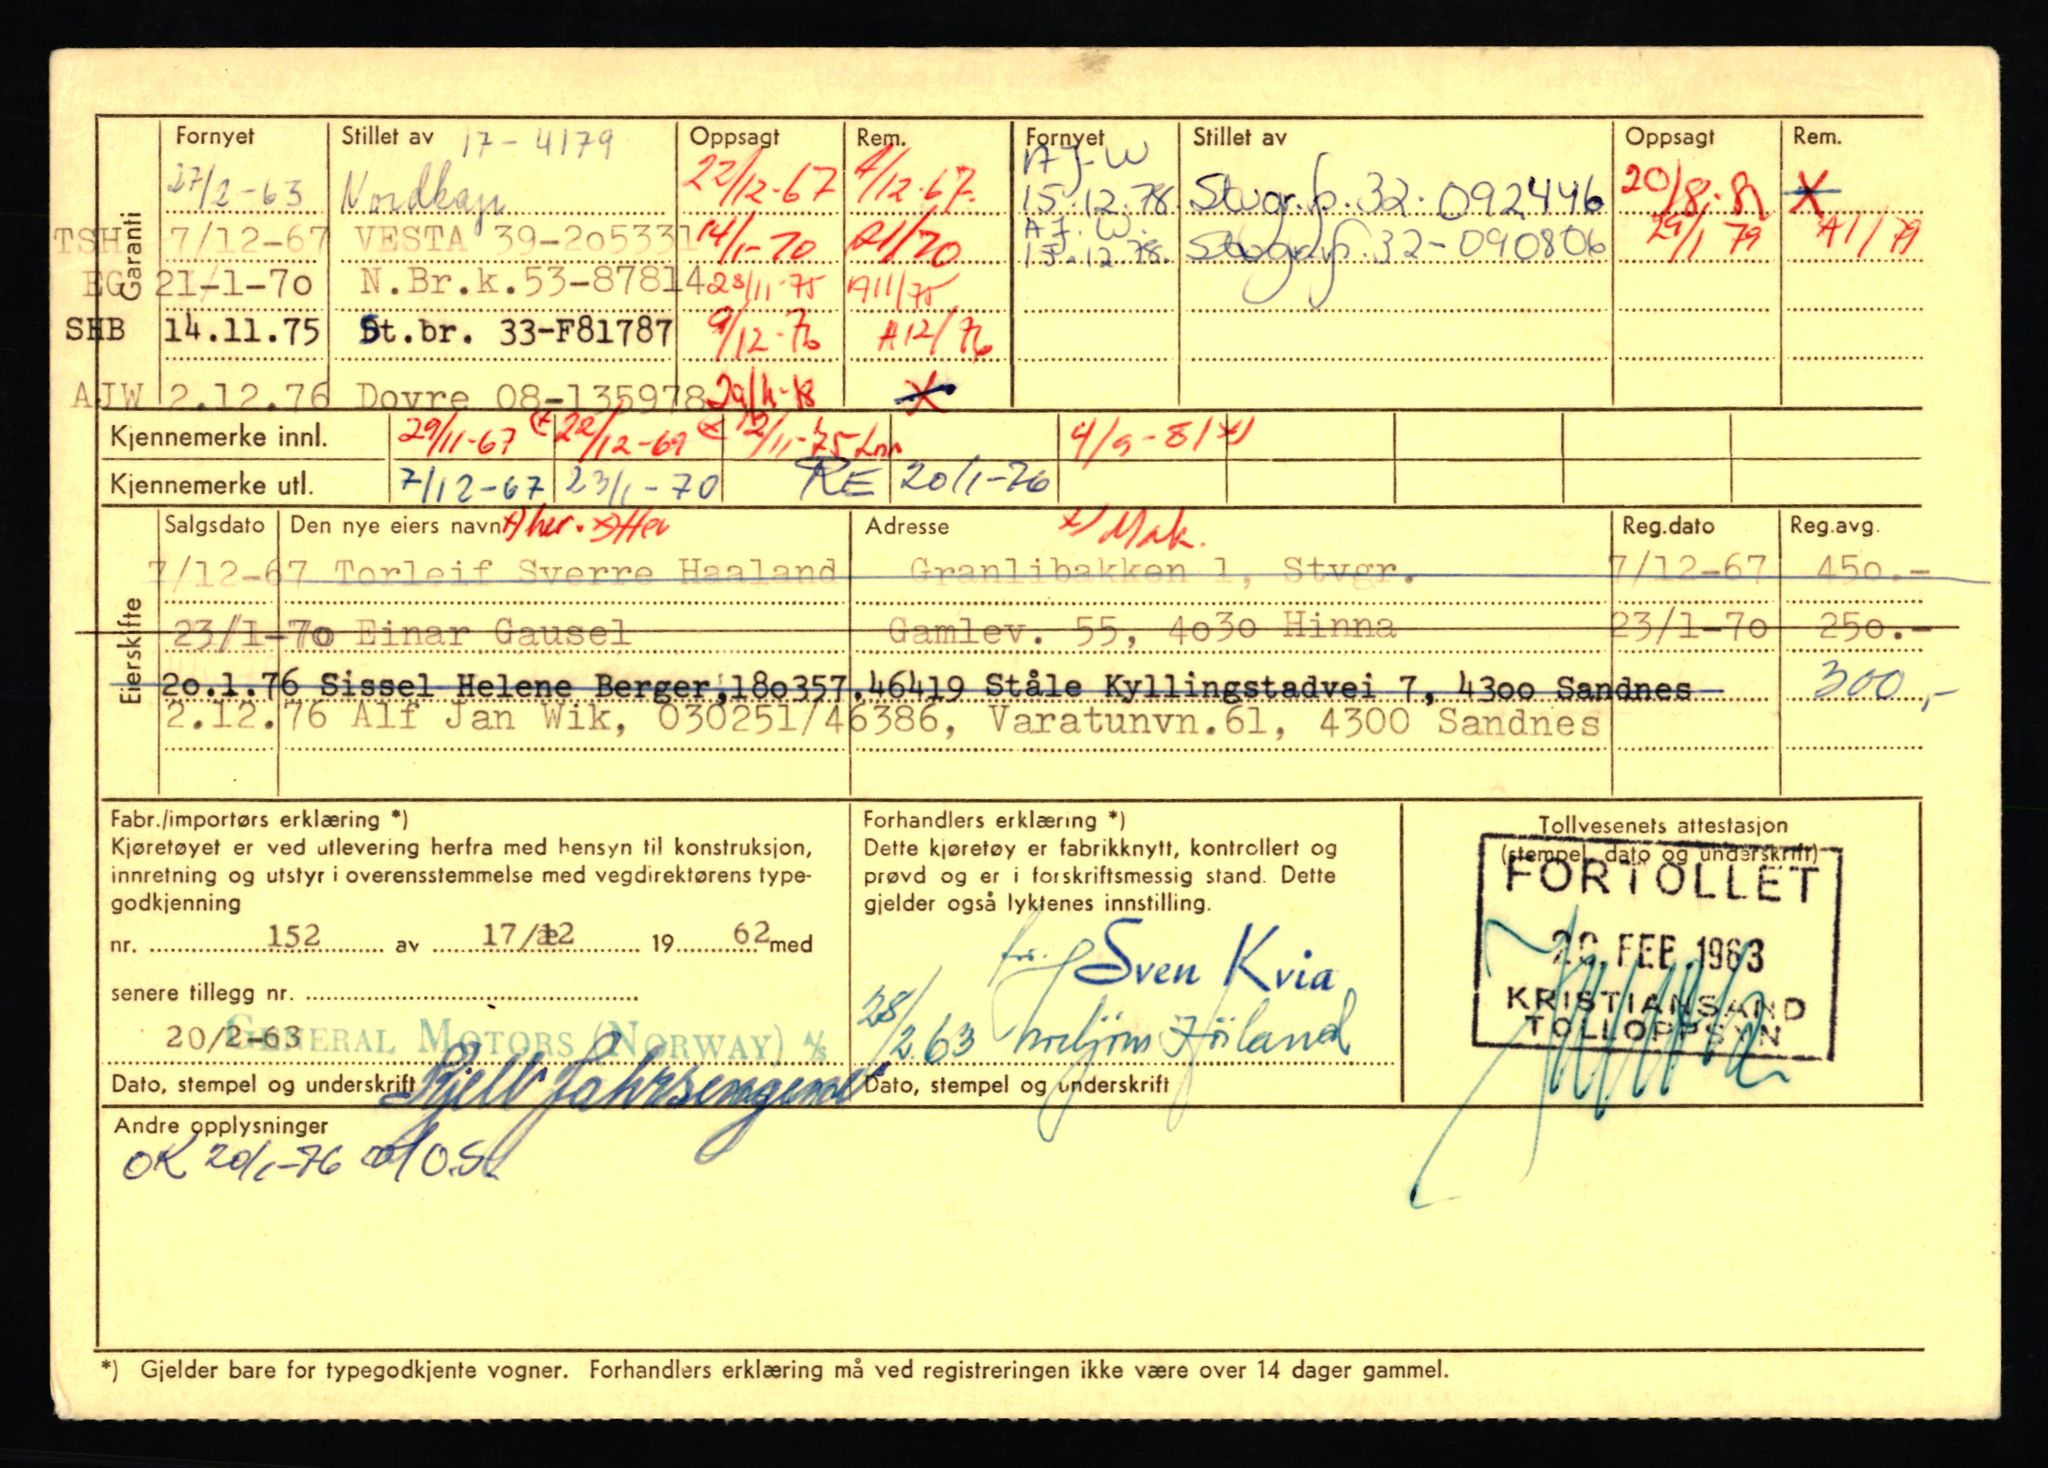 Garanti
Fornyet Stillet av 17-4179 Oppsagt Rem. Fornyet Stillet av Oppsagt Rem.
27/2-63 Nordkap 22/12-67 A/12-67. AJ-W 15.12.78. Stvgr.sp.32.092446 20/8-81 X
TSH 7/12-67 VESTA 39-205331 14/1-70 A1/70 A.J.W. 15.12.78. 32-090806 29/1 79 A1/79
EG 21-1-70 N.Br.k.53-87814 28/11-75 A11/75
SHB 14.11.75 St.br. 33-F81787 9/12-76 A12/76
AJW 2.12.76 Dovre 08-135978 29/11-78 X
Kjennemerke innl. 29/11-67 22/12-69 12/11-75 4/9-81 x)
Kjennemerke utl. 7/12-67 23/1-70 RE 20/1-76
Eierskifte
Salgsdato Den nye eiers navn Adresse x) Mak. Reg.dato Reg.avg.
7/12-67 Torleif Sverre Haaland Granlibakken 1, Stvgr. 7/12-67 450.-
23/1-70 Einar Gausel Gamlev. 55, 4030 Hinna 23/1-70 250.-
20.1.76 Sissel Helene Berger,180357.46419 Ståle Kyllingstadvei 7, 4300 Sandnes 300,-
2.12.76 Alf Jan Wik, 030251/46386, Varatunvn.61, 4300 Sandnes
Fabr./importørs erklæring *)
Kjøretøyet er ved utlevering herfra med hensyn til konstruksjon,
innretning og utstyr i overensstemmelse med vegdirektørens type-
godkjenning
nr. 152 av 17/12 19 62 med
senere tillegg nr.
20/2-63 GENERAL MOTORS (NORWAY) A/S
Dato, stempel og underskrift
Forhandlers erklæring *)
Dette kjøretøy er fabrikknytt, kontrollert og
prøvd og er i forskriftsmessig stand. Dette
gjelder også lyktenes innstilling.
for. Sven Kvia
28/2 63
Dato, stempel og underskrift
Tollvesenets attestasjon
(stempel, dato og underskrift)
FORTOLLET
20. FEB. 1963
KRISTIANSAND
TOLLOPPSYN
Andre opplysninger
OK 20/1-76
*) Gjelder bare for typegodkjente vogner. Forhandlers erklæring må ved registreringen ikke være over 14 dager gammel.